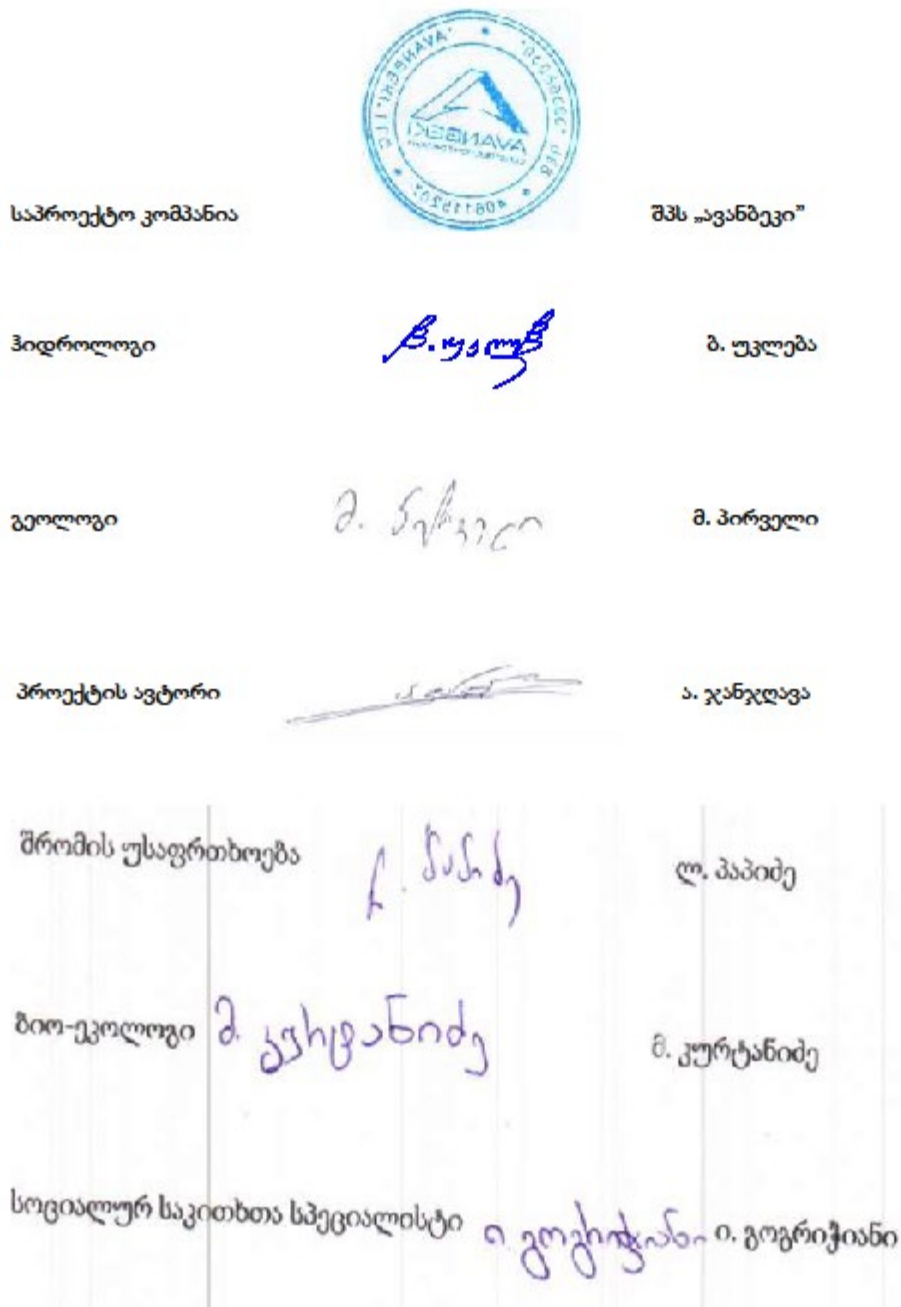 საპროექტო კომპანია შპს „ავანბეკი”
ჰიდროლოგი ბ. უკლება
გეოლოგი მ. პირველი
პროექტის ავტორი ა. ჯანჯღავა
შრომის უსაფრთხოება ლ. პაპიძე ლ. პაპიძე
ბიო-ეკოლოგი მ. კურტანიძე მ. კურტანიძე
სოციალურ საკითხთა სპეციალისტი ი. გოგრიჭიანი ი. გოგრიჭიანი